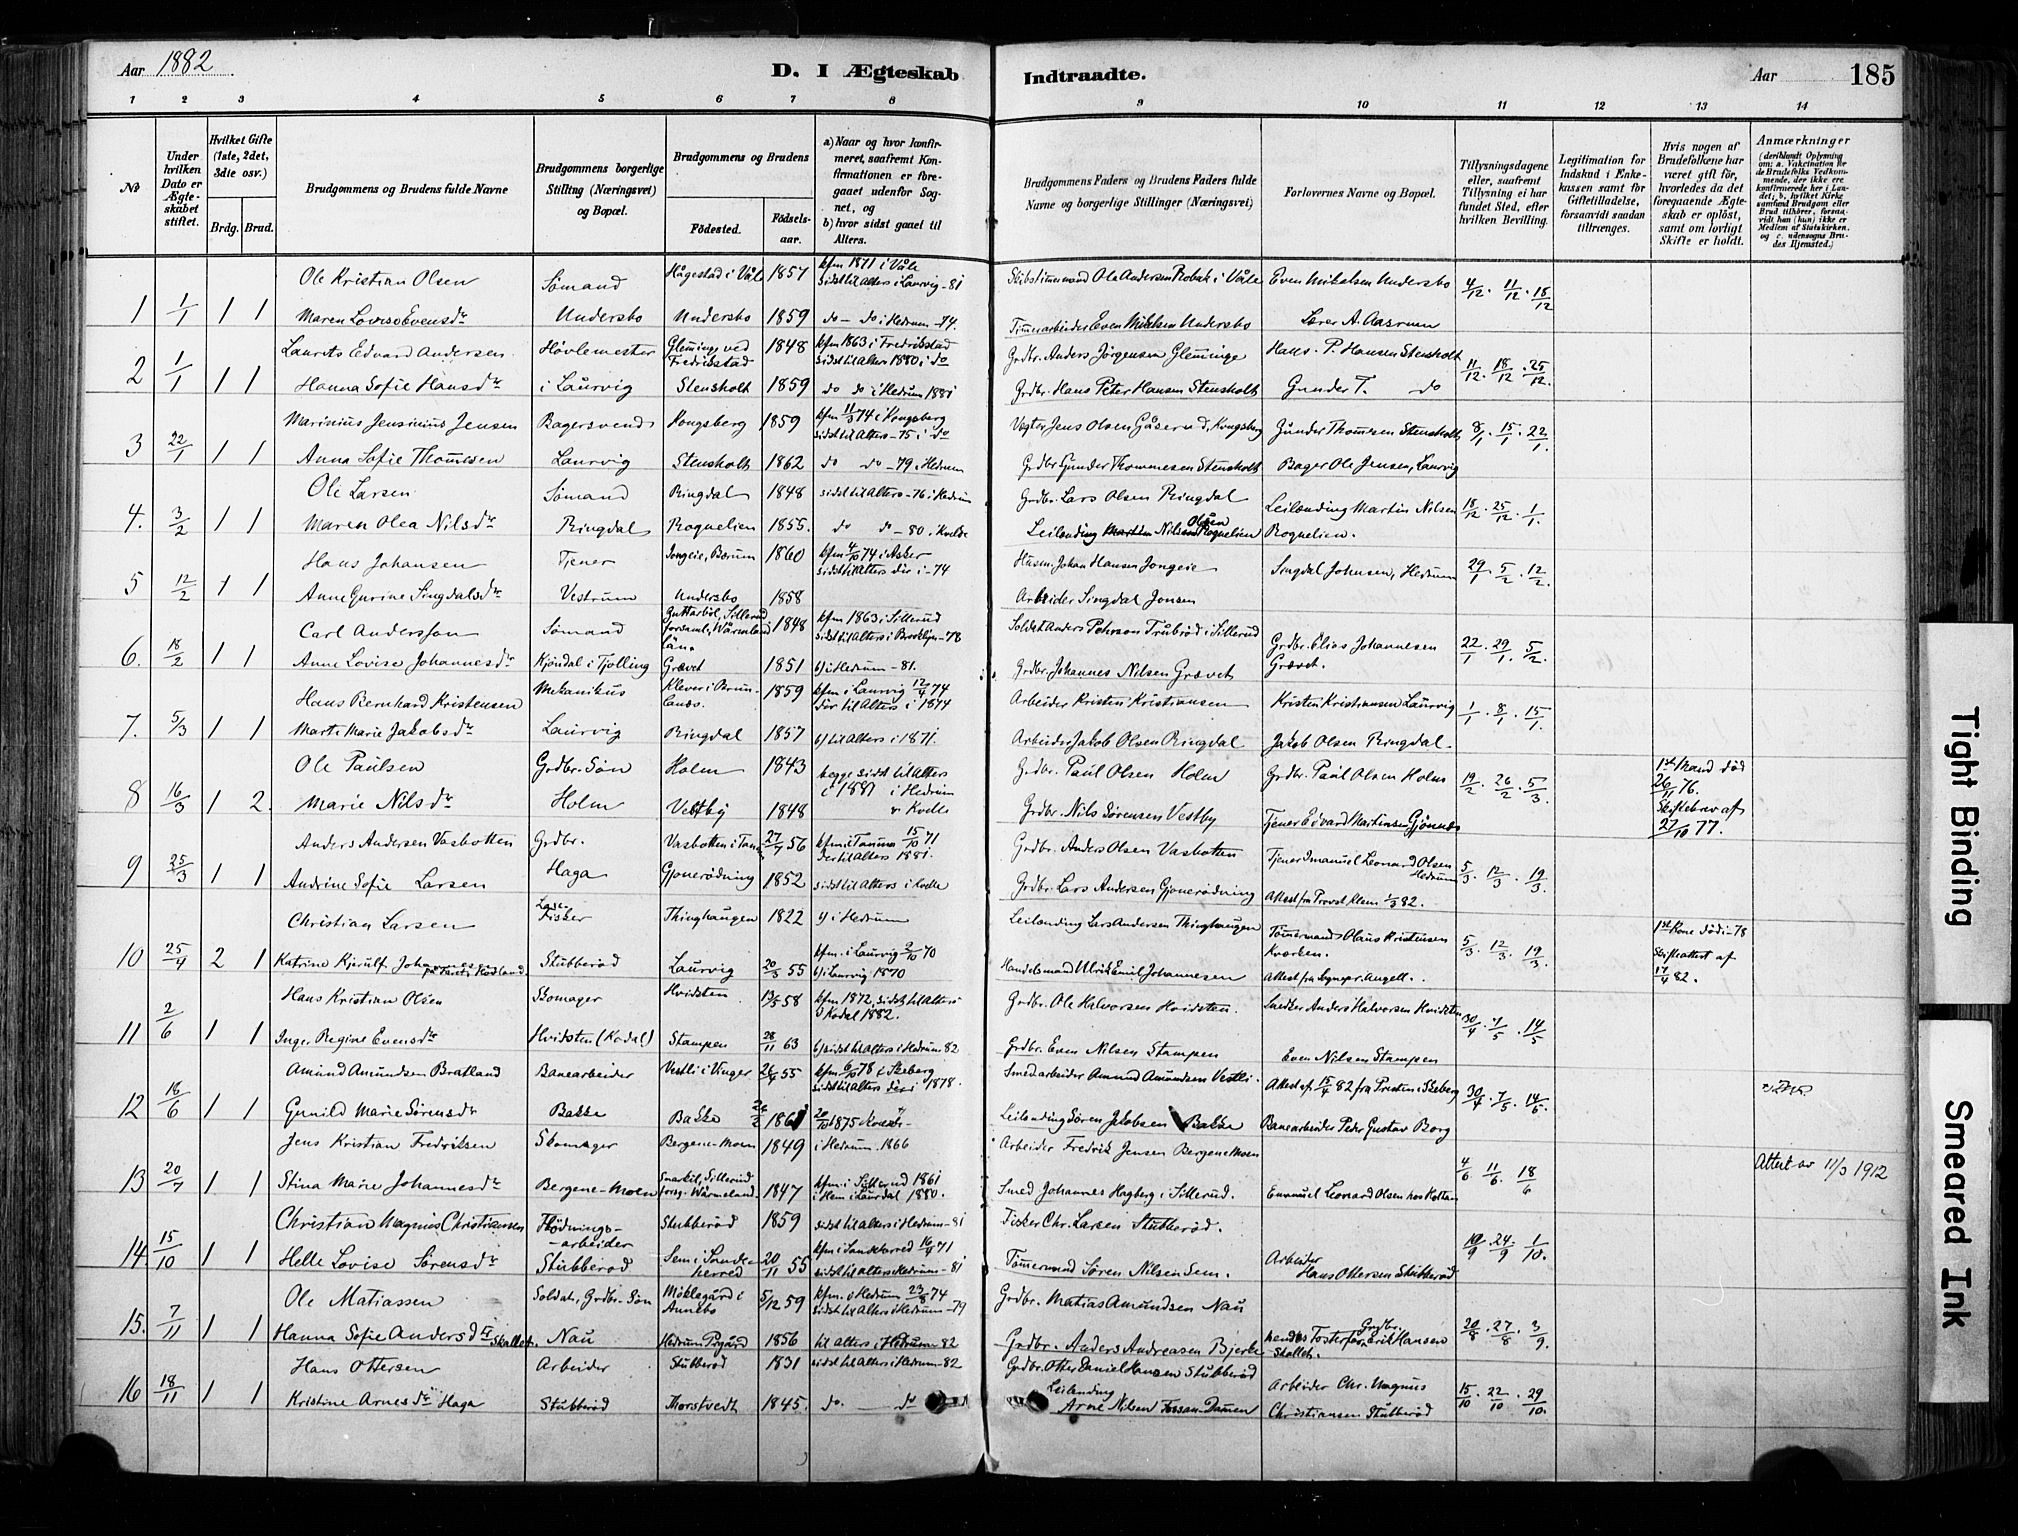 Aar 1882
D. I Ægteskab
Indtraadte.
Aar
185
1 2 3 4 5 6 7 8 9 10 11 12 13 14
No
Under hvilken Dato er Ægteskabet stiftet.
Hvilket Gifte (1ste, 2det, 3die osv.)
Brdg. Brud.
Brudgommens og Brudens fulde Navne
Brudgommens borgerlige Stilling (Næringsvei) og Bopæl.
Brudgommens og Brudens
Födested.
Födselsaar.
a) Naar og hvor konfirmeret, saafremt Konfirmationen er foregaaet udenfor Sognet, og
b) hvor sidst gaaet til Alters.
Brudgommens Faders og Brudens Faders fulde Navne og borgerlige Stillinger (Næringsvei)
Forlovernes Navne og Bopæl.
Tillysningsdagene eller, saafremt Tillysning ei har fundet Sted, efter hvilken Bevilling.
Legitimation for Indskud i Enkekassen samt for Giftetilladelse, forsaavidt saadan tiltrænges.
Hvis nogen af Brudefolkene har været gift för, hvorledes da det foregaaende Ægteskab er oplöst, samt om lovligt Skifte er holdt.
Anmærkninger
(deriblandt Oplysning om: a. Vakcination for de Brudefolks Vedkommende, der ikke ere konfirmerede her i Landet; b. hvilket Kirkesamfund Brudgom eller Brud tilhörer, forsaavidt han (hun) ikke er Medlem af Statskirken, og c. udensogns Brudes Hjemsted.)
Ole Kristian Olsen Sømand Hågestad i Våle 1857 kfm 1871 i Våle sidst til alters i Laurvig -81 Skibstimermand Ole Andersen Robak i Våle Even Mikelsen Undersbo 4/12 . 11/12 . 18/12
1 1/1 1 1 Maren Lovise Evensdr Undersbo Undersbo 1859 do - do i Hedrum -74. Timerarbeider Even Mikelsen Undersbo Lærer A. Aasrum
Laurits Edvard Andersen Høvlemester Gleming ved Fredrikstad 1848 kfm 1863 i Fredrikstad sidst til alters 1880 i do Grdbr. Anders Jörgensen Gleminge Hans P. Hansen Stensholt 11/12 . 18/12 . 25/12.
2 1/1 1 1 Hanna Sofie Hansdr i Laurvig Stensholt 1859 do do i Hedrum 1881 Grdbr. Hans Peter Hansen Stensholt Gunder T. do
Marinius Jensinius Jensen Bagersvend Kongsberg 1859 kfm 11/3 74 i Kongsberg sidst til Alters -75 i do Vegter Jens Olsen Gåserud, Kongsberg Gunder Thomesen Stensholt 8/1 . 15/1 . 22/1.
3 22/1 1 1 Anna Sofie Thomesen Laurvig Stensholt 1862 do do -79 i Hedrum Grdbr Gunder Thommesen Stensholt Bager Ole Jensen, Laurvig
Ole Larsen Sømand Ringdal 1848 sidst til Alters -76 i Hedrum Grdbr. Lars Olsen Ringdal Leilending Martin Nilsen 18/12 . 25/12 . 1/1.
4. 3/2 1 1 Maren Olea Nilsdr Ringdal Roquelien 1855. do do -80 i Kvelde Leilending Nilsen Olsen Roquelien Roquelien.
Hans Johansen Tjener Jongeie, Bærum 1860 kfm 4/10 74 i Asker sidst til Alters dér i -74 Husm. Johan Hansen Jongeie Singdal Johnsen, Hedrum 29/1 . 5/2 . 12/2.
5 12/2 1 1 Anne Gurine Singdalsdr Vestrum Undersbo 1858 Arbeider Singdal Jonsen
Carl Andersson Sømand Sillerud Wärmeland Län. 1848 kfm 1863 i Sillerud sidst til alters i Brooklyn -78 Soldat Anders Peterson Trubröd i Sillerud Grdbr. Elias Johannesen Grævet. 22/1 . 29/1 . 5/2.
6. 18/2 1 1 Anne Lovise Johannesdr Kjöndal i Tjölling Grævet 1851 b) i Hedrum -81. Grdbr. Johannes Nilsen Grævet
Hans Bernhard Kristensen Mekanikus Klever i Brunlanæs. 1859 kfm i Laurvig 12/4 74 dér til Alters i 1874 Arbeider Kristen Kristiansen Kristen Kristiansen Laurvig 1/1 . 8/1 . 15/1.
7. 5/3 1 1 Marte Marie Jakobsdr Laurvig Ringdal 1857 b) til Alters i 1871. Arbeider Jakob Olsen Ringdal Jakob Olsen Ringdal.
Ole Paulsen Grdbr. Søn Holm 1843 begge sidst til Alters i 1881 i Hedrum v Kvelle Grdbr. Paul Olsen Holm Grdbr. Paul Olsen Holm 19/2 . 26/2 . 5/3. 1ste Mand død 26/11 76. Skiftebrev af 27/10 77.
8 16/3 1 2. Marie Nilsdr Holm Vestby 1848 Grdbr. Nils Sörensen Vestby Tjener Edvard Martinsen Gjönnes
Anders Andersen Vasbotten Grdbr. Vasbotten i Tanum 27/7 56 kfm. i Tanum 15/10 71 Der til Alters 1881. Grdbr. Anders Olsen Vasbotten Tjener Imanuel Leonard Olsen Hedrum 5/3 . 12/3 . 19/3.
9 25/3 1 1 Andrine Sofie Larsen Haga Gjonerødning 1852 sidst til Alters i Kvelle Grdbr. Lars Andersen Gjonerødning Attest fra Provst Klem 1/3 82.
Christian Larsen Fisker Thinghaugen 1822 b) i Hedrum Leilending Lars Andersen Thinghaugen Tömermand Olaus Kristensen Kværken. 5/3 . 12/3 . 19/3 1ste Kone Död i -78 Skifteattest af 17/4 82.
10 25/4 2 1 Katrine Kjerulf Johannesen Stubberød Laurvig 20/3 55 kfm. i Laurvig 2/10 70 b) i Laurvig 1870 Handelsmand Ulrik Emil Johannesen Attest fra Sognepr. Angell.
Hans Kristian Olsen Skomager Hvidsten 13/5 58 kfm 1872, sidst til Alters i Kodal 1882. Grdbr. Ole Halvorsen Hvidsten. Snedker Anders Halvorsen Hvidsten 30/4 . 7/5 . 14/5
11 2/6 1 1 Inger Regine Evensdr Hvidsten (Kodal) Stampen 28/11 63 b) sidst til Alters i Hedrum 82 Grdbr. Even Nilsen Stampen Even Nilsen Stampen
Amund Amundsen Bratland Banearbeider Vestli i Vinger 26/4 55 kfm 6/10 78 i Skeberg sidst til alters dér i 1878. Smedarbeider Amund Amundsen Vestli. Attest af 15/4 82 fra Presten i Skeberg 30/4 . 7/5 . 14/5.
12 16/6 1 1 Gunild Marie Sörensdr Bakke Bakke 1861 Leilending Sören Jakobsen Bakke Banearbeider Peder Gustav Borg
Jens Kristian Fredriksen Skomager Bergene-Moen 1849 i Hedrum 1866 Arbeider Fredrik Jensen Bergene Moen 4/6 . 11/6 . 18/6 Attest av 11/3 1912
13 20/7 1 1 Stina Marie Johannesdr Bergene-Moen Sillerud Wärmeland. 1847 kfm. i Sillerud 1861 i Hem i Laurdal 1880. Smed Johannes Hagberg i Sillerud. Emanuel Leonard Olsen
Christian Magnus Christiansen Flödnings-arbeider Stubberød 1859 sidst til alters i Hedrum -81 Fisker Chr. Larsen Stubberød. 10/9 24/9 1/10.
14. 15/10 1 1 Helle Lovise Sörensdr Stubberød Sem i Sandeherred 20/11 55 kfm i Sandeherred 16/4 71 sidst til alters i Hedrum -81 Tömermand Sören Nilsen Sem. Arbeider Hans Ottersen Stubberød
Ole Matiassen Soldat, Grdbr. Søn Möklegård i Annebo 5/12 59 kfm. i Hedrum 23/8 74 sidst til Alters i Hedrum -79 Grdbr. Matias Amundsen Nau
15. 7/11 1 1 Hanna Sofie Andersdtr Skallet. Nau Hedrum Prgård 1856 til alters i Hedrum 82 Grdbr. Anders Andreasen Bjerke hendes Fosterfar, Grdbr. Erik Hansen Skallet. 20/8 . 27/8 . 3/9.
Hans Ottersen Arbeider Stubberød 1831 sidst til Alters i Hedrum -82 Grdbr. Otter Daniel Hansen Stubberød
16 18/11 1 1 Kristine Arnesdr Haga Stubberød Thorstvedt 1845. do. do Leilending Arne Nilsen Fossan-Damen Arbeider Chr. Magnus Christiansen Stubberød 15/10 . 22/10 . 29/10.
Tight Binding
Smeared Ink